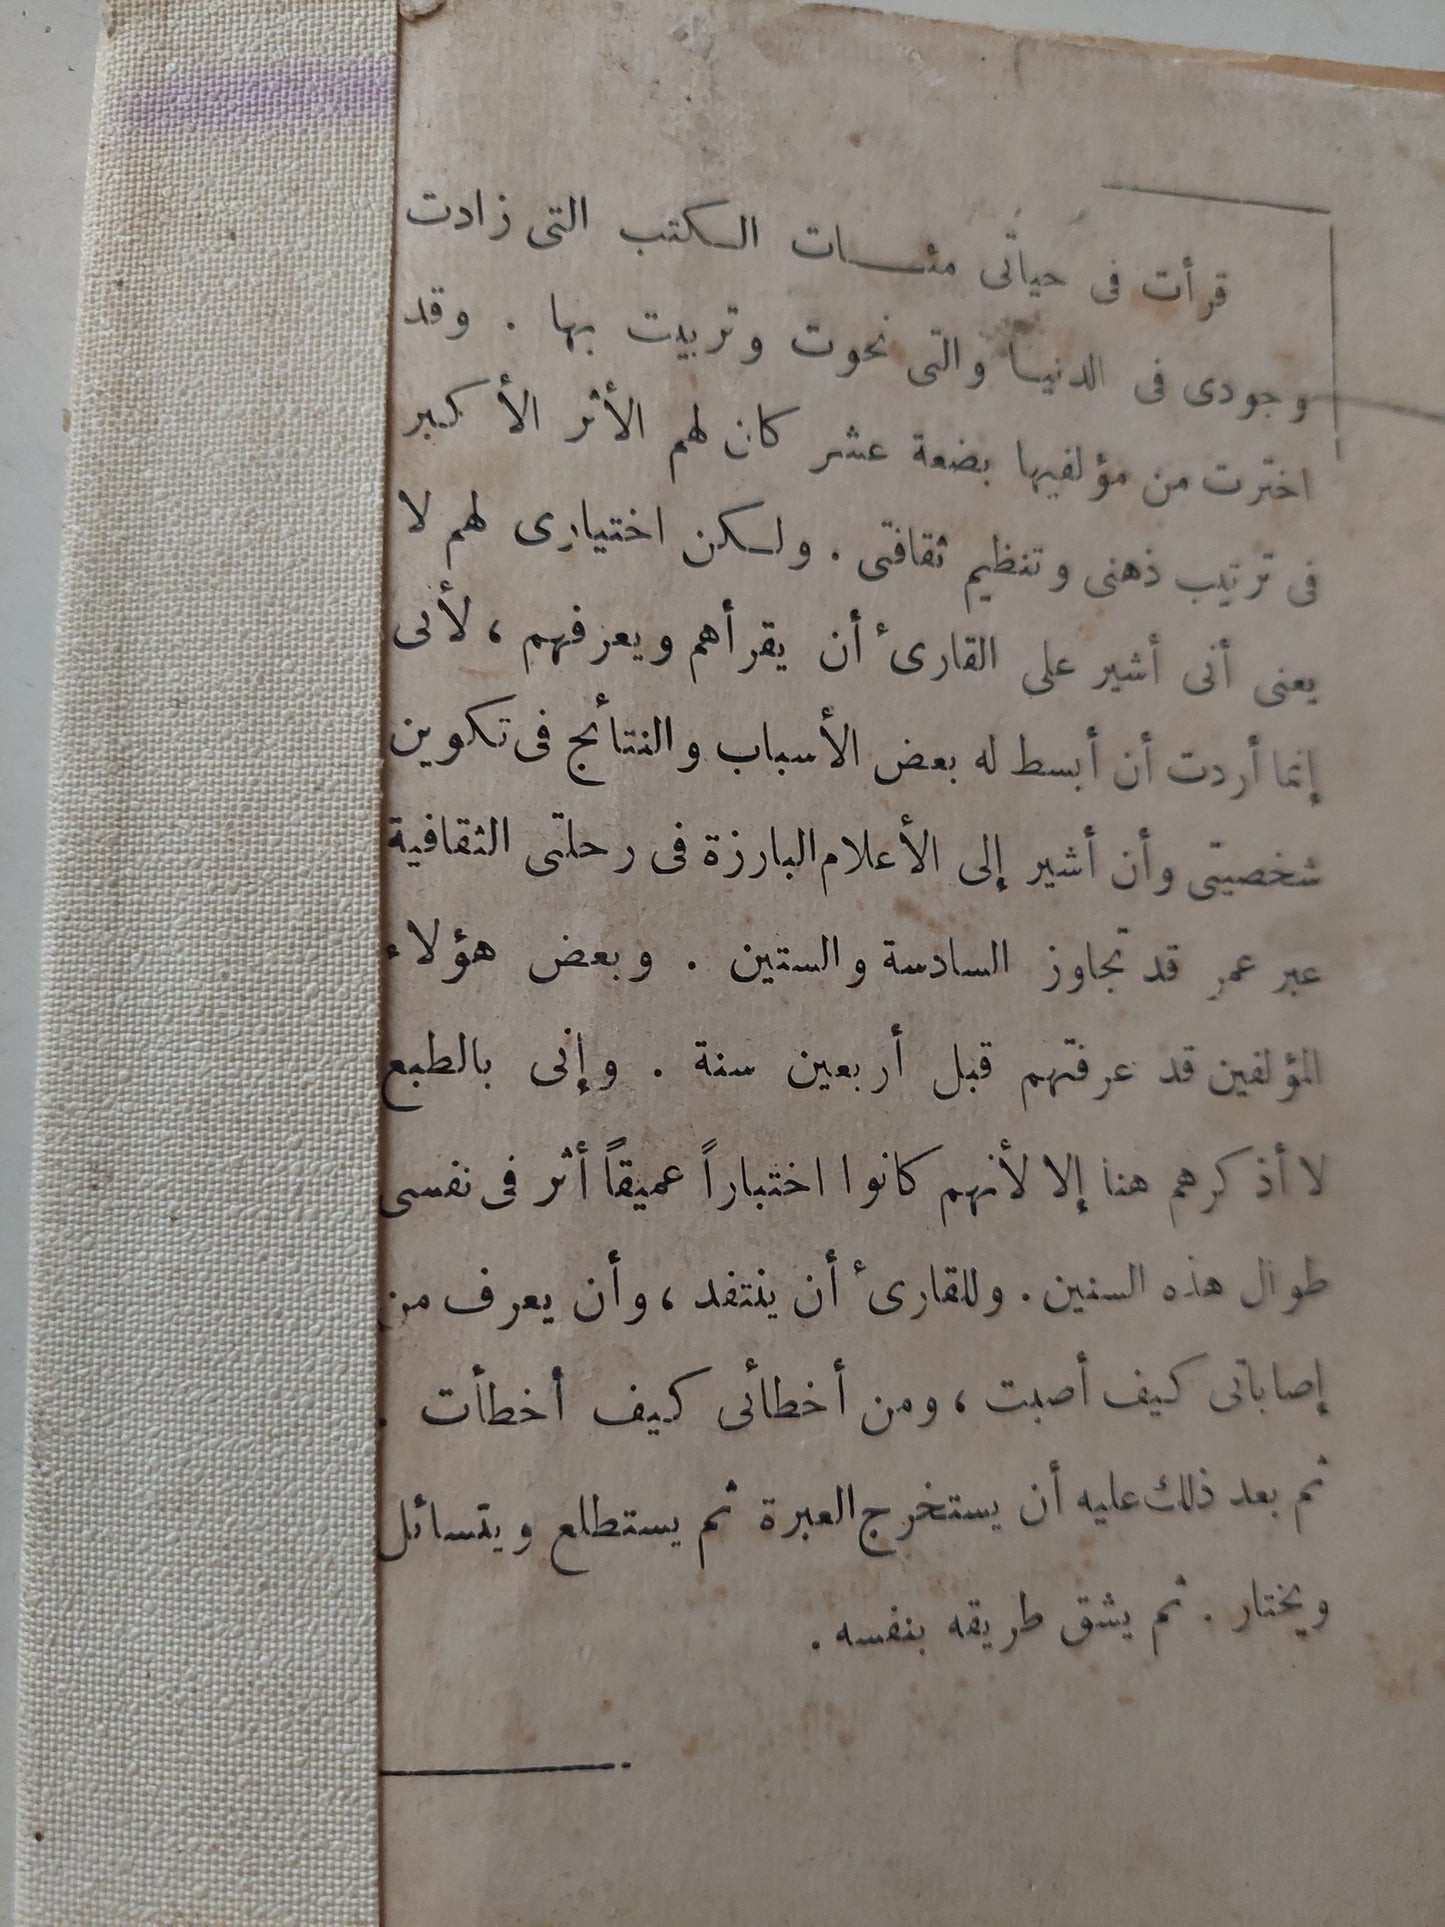 قرأت فى حياتى مئات الكتب التى زادت
وجودى فى الدنيا والتى نحوت وتربيت بها . وقد
اخترت من مؤلفيها بضعة عشر كان لهم الأثر الأكبر
فى ترتيب ذهنى وتنظيم ثقافتى . ولكن اختيارى لهم لا
يعنى أنى أشير على القارئ أن يقرأهم ويعرفهم ، لأنى
إنما أردت أن أبسط له بعض الأسباب والنتائج فى تكوين
شخصيتى وأن أشير إلى الأعلام البارزة فى رحلتى الثقافية
عبر عمر قد تجاوز السادسة والستين . وبعض هؤلاء
المؤلفين قد عرفتهم قبل أربعين سنة . وإنى بالطبع
لا أذكرهم هنا إلا لأنهم كانوا اختباراً عميقاً أثر فى نفسى
طوال هذه السنين . وللقارئ أن ينتقد ، وأن يعرف من
إصاباتى كيف أصبت ، ومن أخطائى كيف أخطأت .
ثم بعد ذلك عليه أن يستخرج العبرة ثم يستطلع ويتسائل
ويختار . ثم يشق طريقه بنفسه .